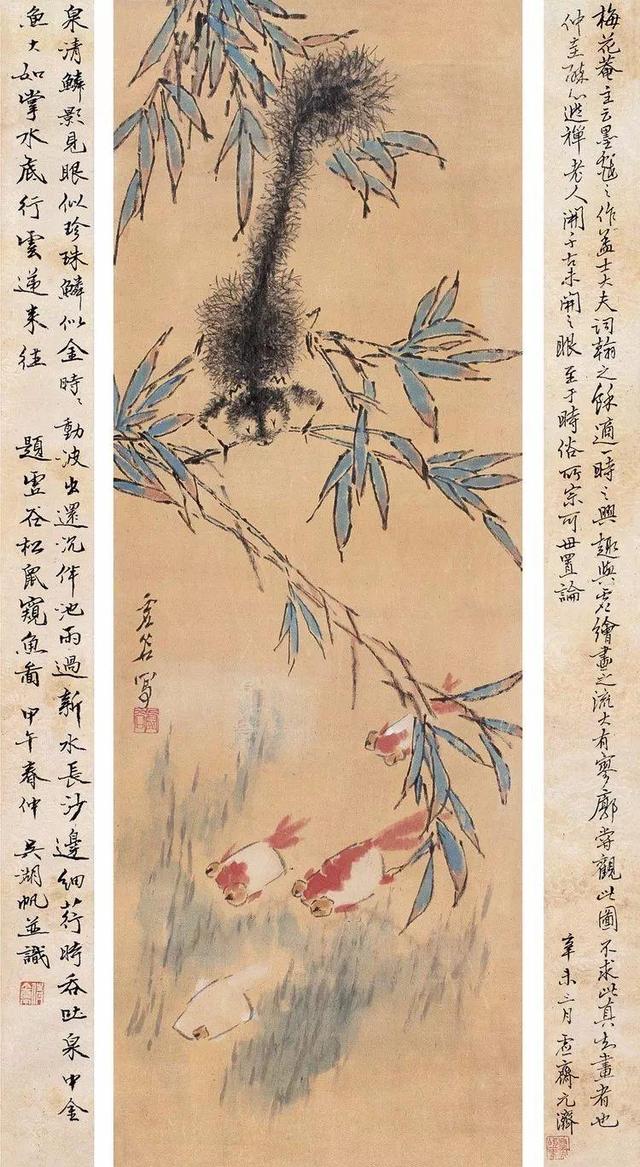 梅花菴主云墨戲之作葢士大夫詞翰之餘適一時之興趣與夫繪畫之流大有寥廓嘗觀此圖不求此真知畫者也
仲圭醉心逃禪老人開千古未開之眼至于時俗所宗可毋置論
辛未三月虛齋元濟
虛谷寫
泉清鱗影見眼似珍珠鱗似金時〻動波出還沉伴池雨過新水長沙邊細荇時吞吐泉中金
魚大如掌水底行雲遞來往 題虛谷松鼠窺魚啚 甲午春仲 吳湖帆並識